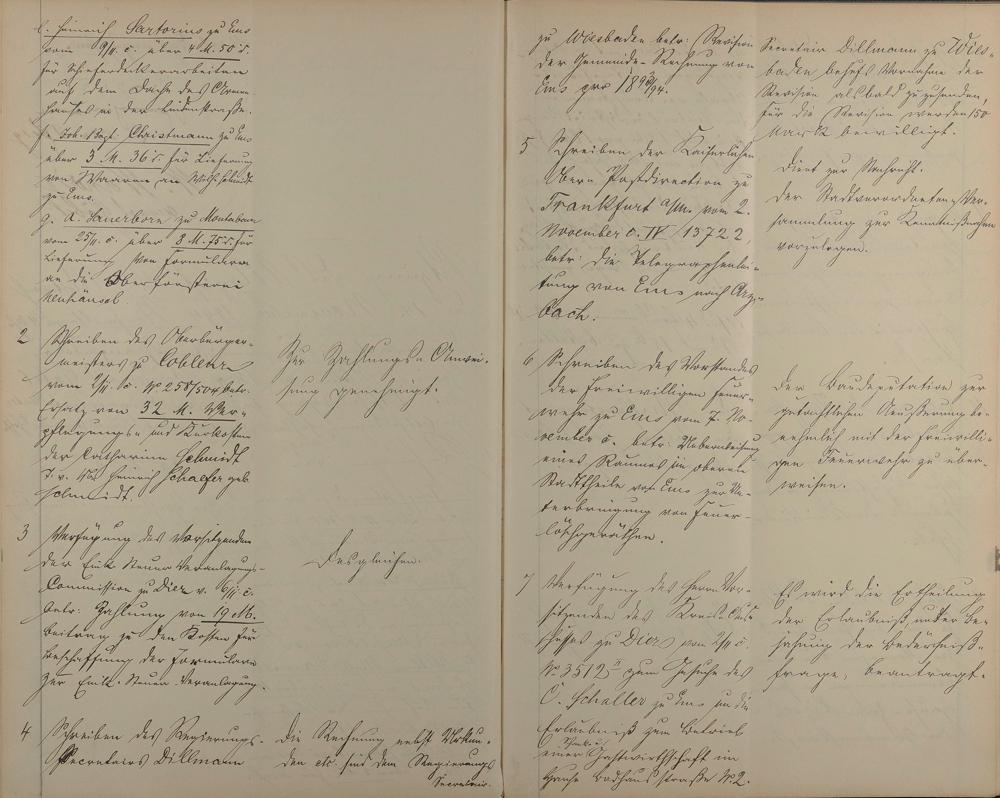 e. Heinrich Sartorius zu Ems
vom 9/11. c. über 4 M. 50 d.
für Schieferdeckerarbeiten
auf dem Dache des Armen-
hauses in der Lindenstraße.
f. Joh. Bapt. Christmann zu Ems
über 3 M. 36 d. für Lieferung
von Waaren an Wilh. Schmidt
zu Ems.
g. A. Sauerborn zu Montabaur
vom 25/11. c. über 8 M. 75 d. für
Lieferung von Formularen
an die Oberförsterei
Neuhäusel.
2 Schreiben des Oberbürger-
meisters zu Coblenz
vom 9/11. c. No 258/504 betr.
Ersatz von 32 M. Ver-
pflegungs- und Kurkosten
der Catharina Schmidt
T. v. Heinrich Schaefer geb.
Schmidt.
Zur Zahlungs-Anwei-
sung genehmigt.
3 Verfügung des Vorsitzenden
der Eink. Steuer Veranlagungs-
Commission zu Diez v. 6/11. c.
betr: Zahlung von 19 M.
Beitrag zu den Kosten für
Beschaffung der Formulare
zur Eink.-Steuer-Veranlagung.
Desgleichen.
4 Schreiben des Regierungs-
Secretairs Dillmann
Die Rechnung nebst Urkun-
den etc. sind dem Regierungs
Secretair
zu Wiesbaden betr: Revision
der Gemeinde-Rechnung von
Ems pro 1893/94.
Secretair Dillmann zu Wies-
baden behufs Vornahme der
Revision alsbald zuzusenden,
für die Revision werden 150
Mark bewilligt.
5 Schreiben der Kaiserlichen
Obern Postdirection zu
Frankfurt a/M. vom 2.
November c. IV/13722,
betr: die Telegraphenlei-
tung von Ems nach Arz-
bach.
Dient zur Nachricht.
Der Stadtverordneten-Ver-
sammlung zur Kenntnißnahme
vorzulegen.
6 Schreiben des Vorstandes
der Freiwilligen Feuer-
wehr zu Ems vom 7. No-
vember c. betr: Ueberweisung
eines Raumes im oberen
Stadttheile von Ems zur Un-
terbringung von Feuer-
löschgeräthen.
Der Baudeputation zur
gutachtlichen Aeußerung be-
nehmlich mit der Freiwilli-
gen Feuerwehr zu über-
weisen.
7 Verfügung des Herrn Vor-
sitzenden des Kreis-Aus-
schusses zu Diez vom 2/11 c.
No 3512 zum Gesuche des
C. Schaller zu Ems um die
Erlaubniß zum Betrieb
einer Gastwirthschaft im
Hause Badhausstraße No 2.
Es wird die Ertheilung
der Erlaubniß unter Be-
jahung der Bedürfniß-
frage, beantragt.